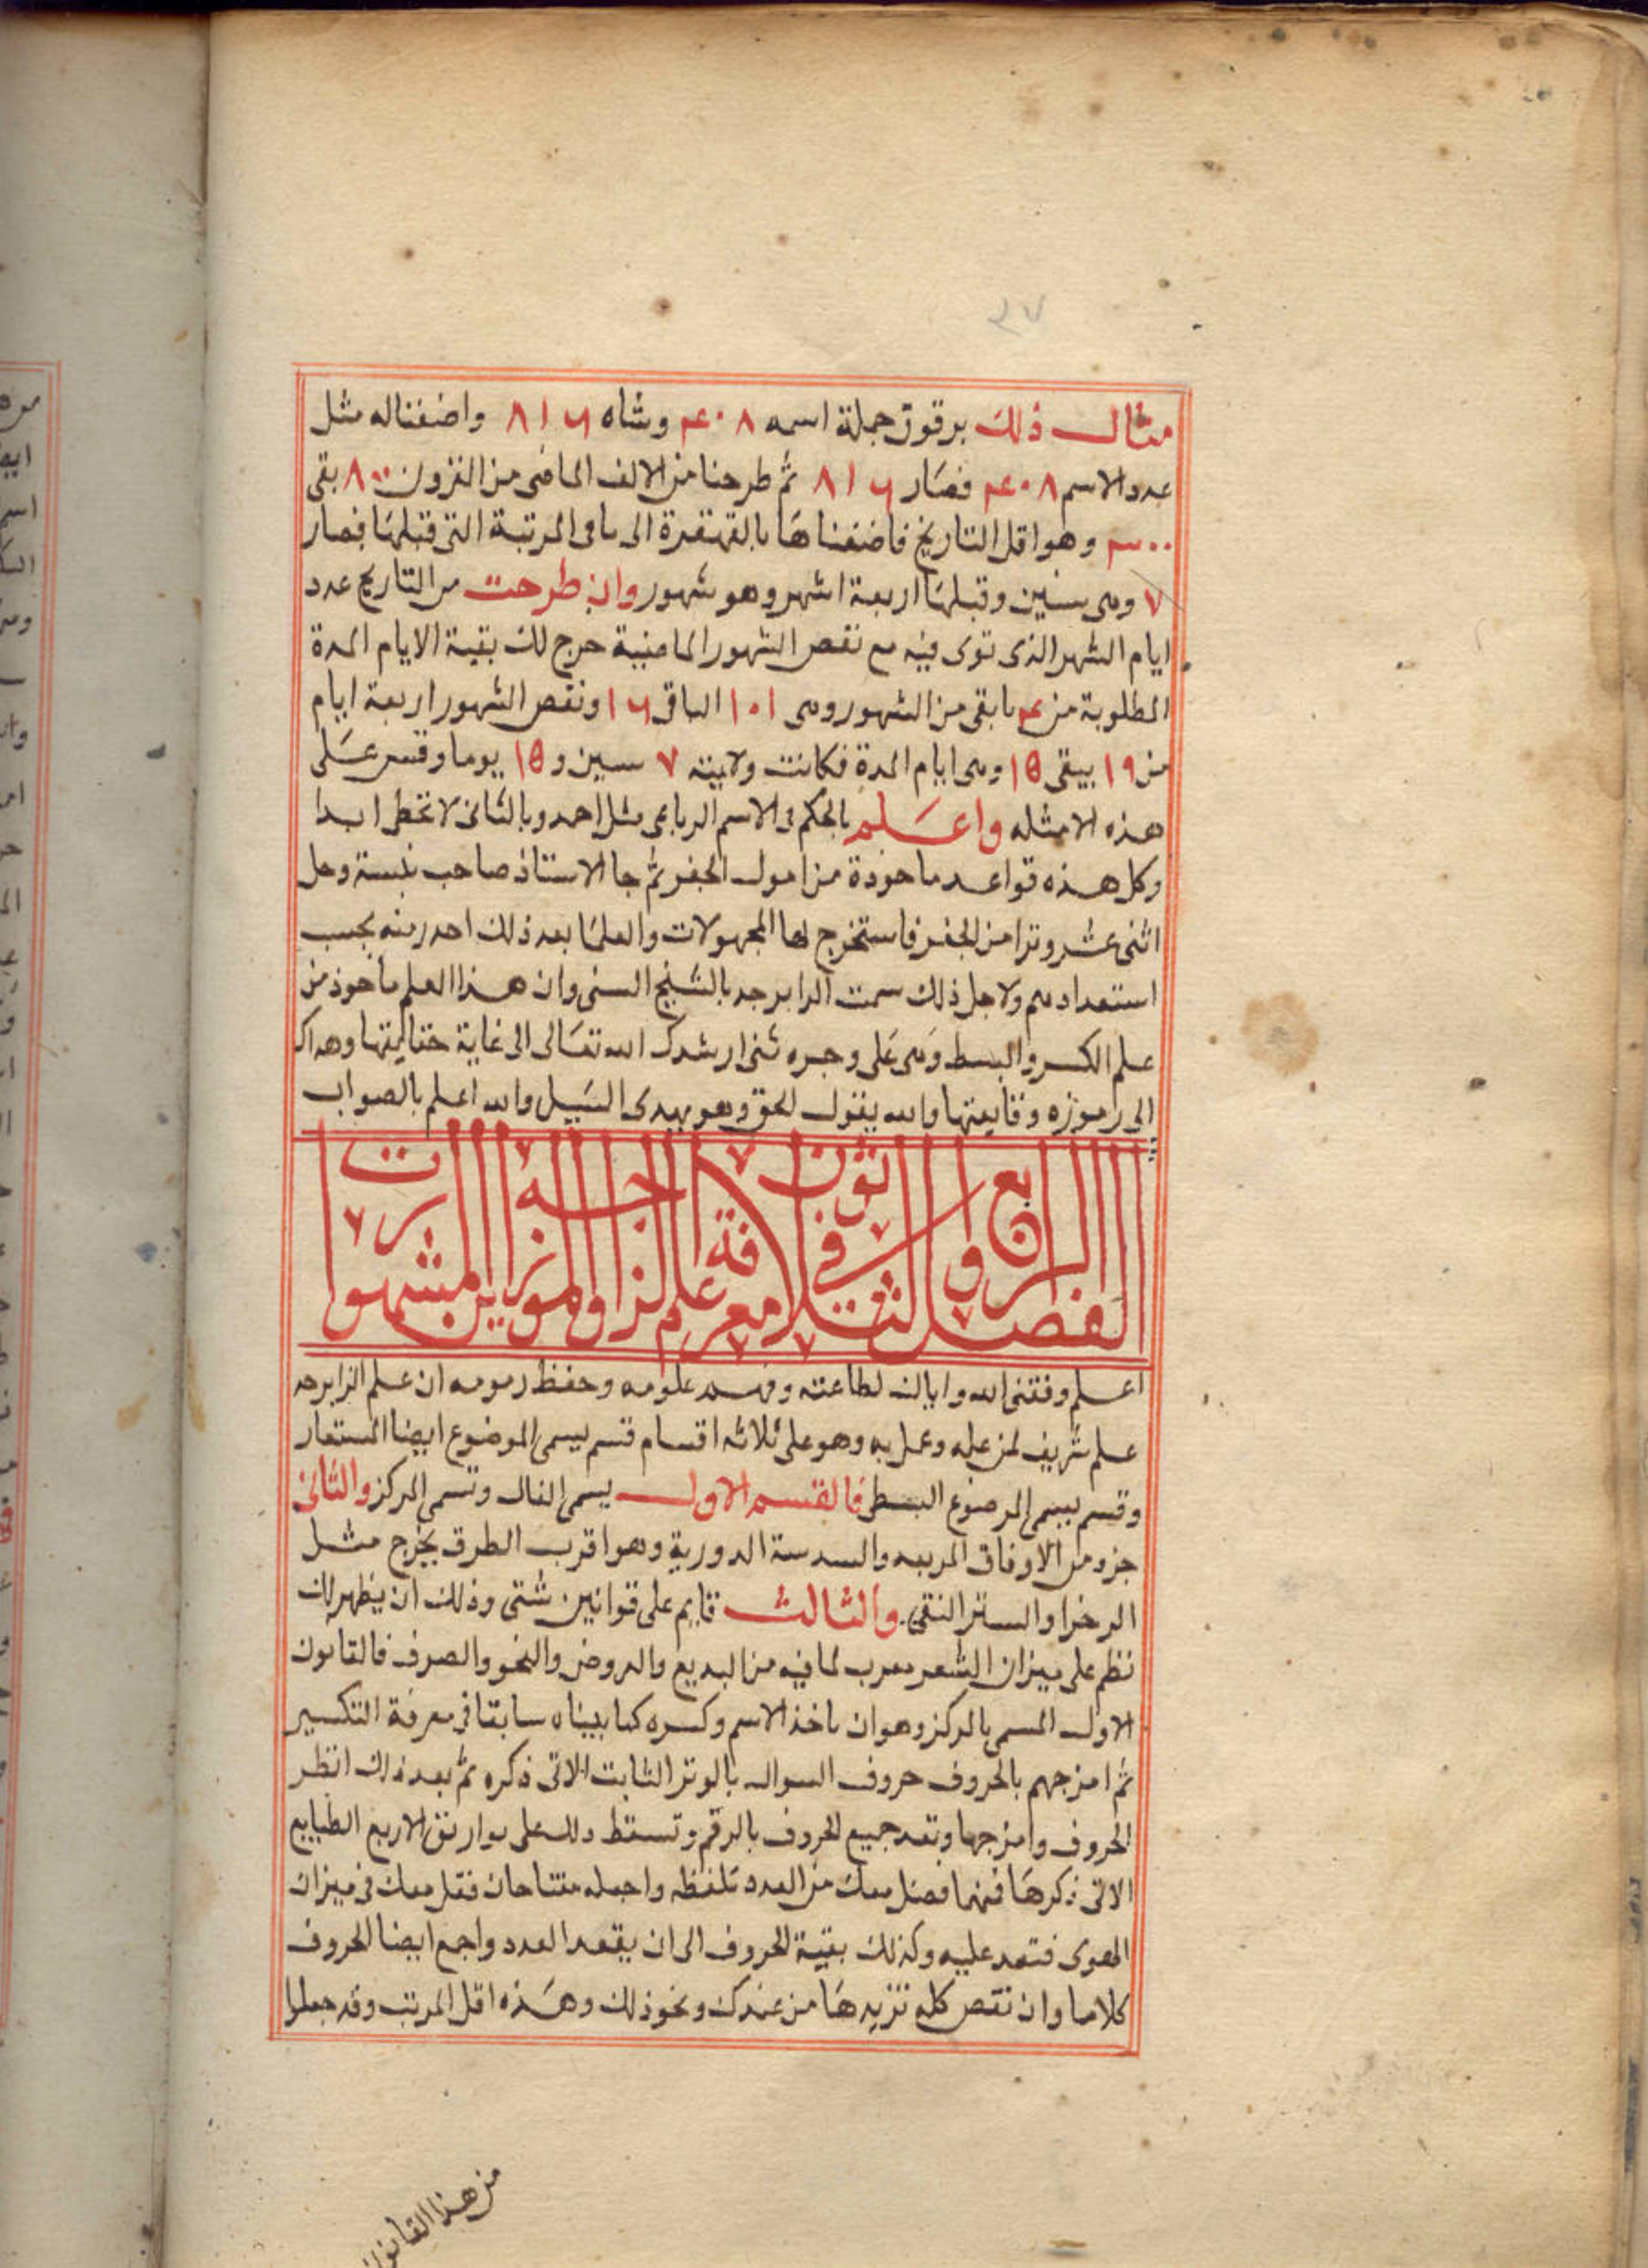 ٣٧
مثال ذلك برقوق جملة اسمه ٤٠٨ ومثاه ٨١٦ واضفناله مثل
عدد الاسم ٤٠٨ فصار ٨١٦ ثم طرحنا من الالف الماضى من القرون ٨٠٠ بقى
وهو اقل التاريخ فاضفناها بالقهقرة الى باقى المرتبة التى قبلها فصار
٧ وهى سنين وقبلها اربعة اشهر وهو شهور وان طرحت من التاريخ عدد
ايام الشهر الذى توى فيه مع نقص الشهور الماضية خرج لك بقية الايام المدة
المطلوبة من ما بقى من الشهور وهى ١٠١ الباقى ١٦ ونقص الشهور اربعة ايام
من ١٩ يبقى ١٥ وهى ايام المدة فكانت ولايته ٧ سنين و ١٥ يوما وقس على
هذه الامثله واعلم بالحكم فى الاسم الرباعى مثل احمد وبالثانى لا تخطى ابدا
وكل هذه قواعد ماخوذة من اصول الجفر ثم جا الاستاذ صاحب وحل
اثنى عشر وترا من الجفر فاستخرج لها المجهولات والعلما بعد ذلك بحسب
استعدادهم ولاجل ذلك سمت الزايرجه بالشيخ السنى وان هذا العلم ماخوذ من
علم الكسر والبسط وهى على وجوه شتى ارشدك الله تعالى الى غاية وهداك
الى رموزه والله يقول الحق وهو يهدى السبيل والله اعلم بالصواب
الفصل الرابع والثلاثون فى معرفة علم الزايرجه والموازين المشهورات
اعلم وفقنى الله واياك لطاعته وفهم علومه وحفظ رسومه ان علم الزايرجه
علم شريف لمن علمه وعمل به وهو على ثلاثه اقسام قسم يسمى الموضوع ايضا المستعار
وقسم يسمى الموضوع البسطى فالقسم الاول يسمى الفال وتسمى المركز والثانى
جزو من الاوفاق المربعه والمسدسة الدورية وهو اقرب الطرق يخرج مثل
والثالث قايم على قوانين شتى وذلك ان يظهر لك
نظم على ميزان الشعر معرب لما فيه من البديع والعروض والنحو والصرف فالقانون
الاول المسمى بالمركز وهو ان تاخذ الاسم وكسره كما بيناه سابقا فى معرفة التكسير
ثم امزجهم بالحروف حروف السوال بالوتر الثابت الاتى ذكره ثم بعد ذلك انظر
الحروف وامزجها وتعد جميع الحروف بالرقم وتسقط ذلك على الاربع الطبايع
الاتى ذكرها فهما فضل معك من العدد تلفظه واجعله مفتاحا فقل معك فى ميزان
الهوى فتعد عليه وكذلك بقية الحروف الى ان يقعد العدد واجمع ايضا الحروف
كلاما وان نقص كله تزيدها من عندك ونحو ذلك وهذه اقل المرتب وقد جعلوا
من هذا القانون